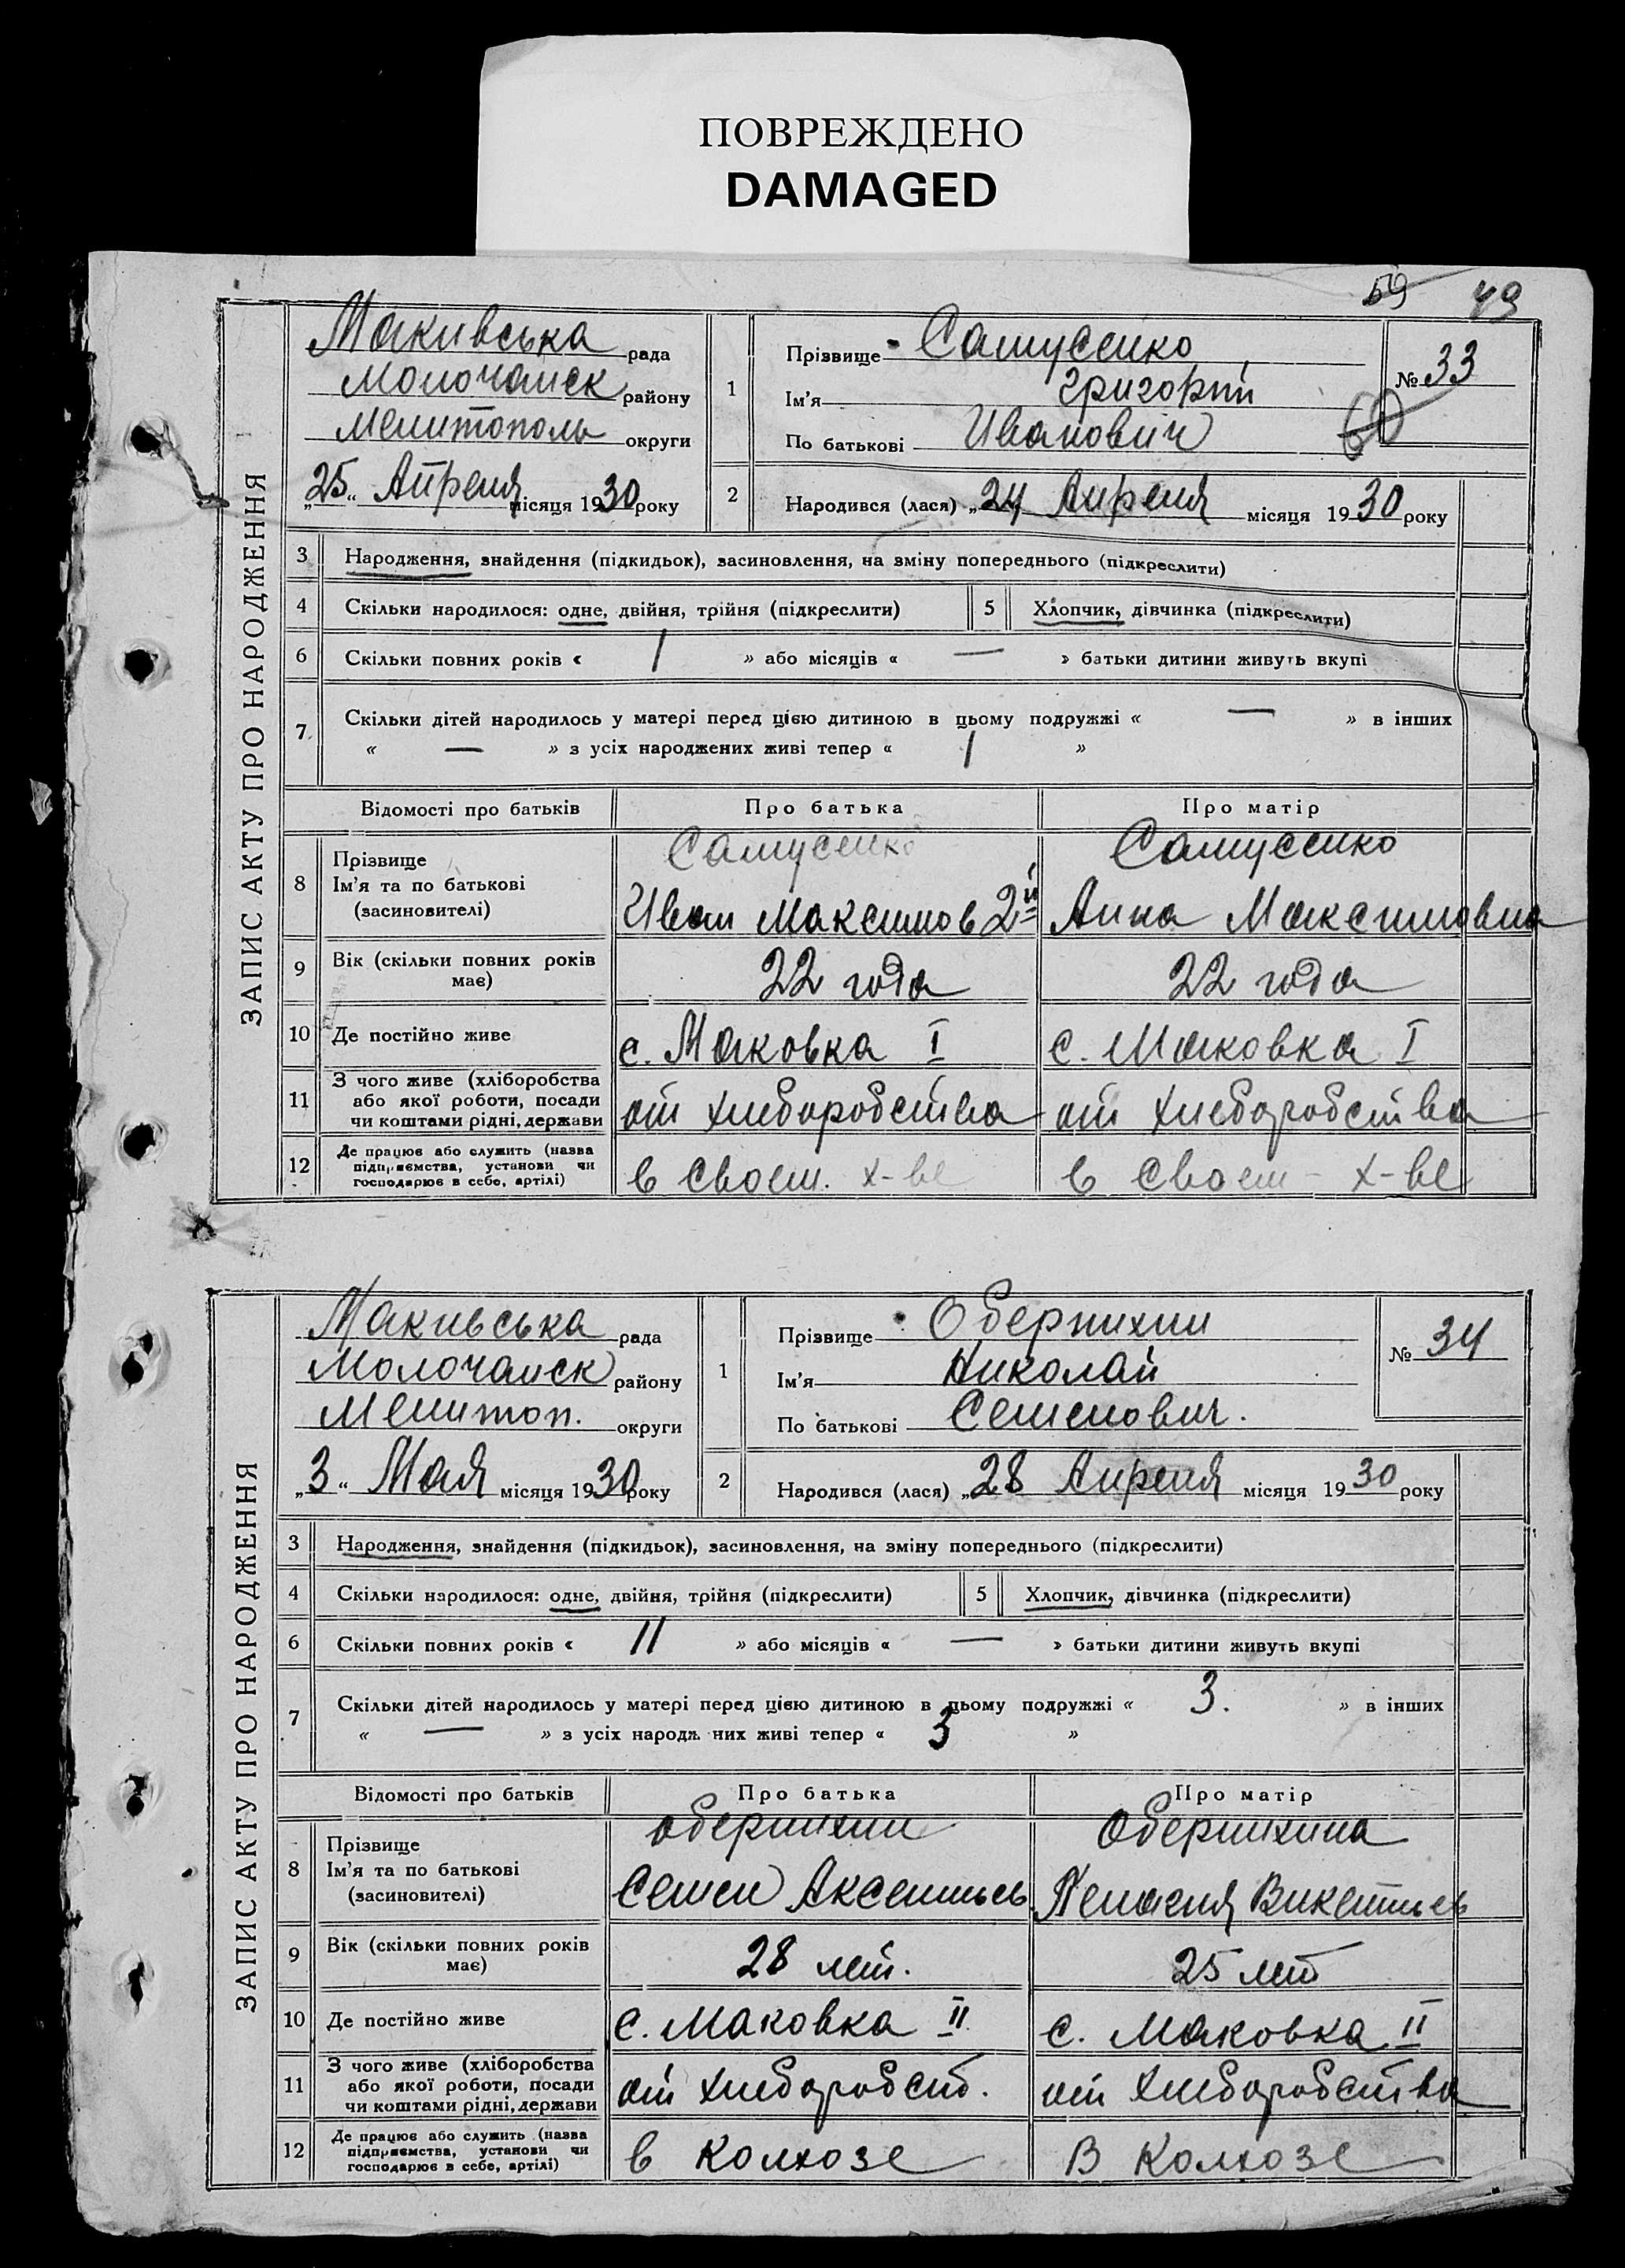 ПОВРЕЖДЕНО
DAMAGED
59 49
ЗАПИС АКТУ ПРО НАРОДЖЕННЯ
Макивська рада
Молочанск району
Мелитополь округи
„25„ Апреля місяця 1930 року
1
Прізвище Самусенко
Ім'я Григорий
По батькові Иванович
№ 33
60
2 Народився (лася) „24„ Апреля місяця 1930 року
3 Народження, знайдення (підкидьок), засиновлення, на зміну попереднього (підкреслити)
4 Скільки народилося: одне, двійня, трійня (підкреслити) 5 Хлопчик, дівчинка (підкреслити)
6 Скільки повних років « 1 » або місяців « — » батьки дитини живуть вкупі
7 Скільки дітей народилось у матері перед цією дитиною в цьому подружжі « — » в інших
« — » з усіх народжених живі тепер « 1 »
Відомості про батьків Про батька Про матір
8 Прізвище Самусенко Самусенко
Ім'я та по батькові
(засиновителі) Иван Максимов 2й Анна Максимовна
9 Вік (скільки повних років має) 22 года 22 года
10 Де постійно живе с. Маковка I с. Маковка I
11 З чого живе (хліборобства
або якої роботи, посади
чи коштами рідні, держави от хлеборобства от хлеборобства
12 Де працює або служить (назва
підприємства, установи чи
господарює в себе, артілі) в своем. х-ве в своем - х-ве
ЗАПИС АКТУ ПРО НАРОДЖЕННЯ
Макивська рада
Молочанск району
Мелитоп. округи
„3“ Мая місяця 1930 року
1
Прізвище Обернихин
Ім'я Николай
По батькові Семенович.
№ 34
2 Народився (лася) „28 Апреля місяця 1930 року
3 Народження, знайдення (підкидьок), засиновлення, на зміну попереднього (підкреслити)
4 Скільки народилося: одне, двійня, трійня (підкреслити) 5 Хлопчик, дівчинка (підкреслити)
6 Скільки повних років « 11 » або місяців « — » батьки дитини живуть вкупі
7 Скільки дітей народилось у матері перед цією дитиною в цьому подружжі « 3. » в інших
« — » з усіх народж них живі тепер « 3 »
Відомості про батьків Про батька Про матір
8 Прізвище Обернихин Обернихина
Ім'я та по батькові
(засиновителі) Семен Аксентьев Пелагея Викентьев
9 Вік (скільки повних років має) 28 лет. 25 лет
10 Де постійно живе с. Маковка II с. Маковка II
11 З чого живе (хліборобства
або якої роботи, посади
чи коштами рідні, держави от хлеборобств. от хлеборобства
12 Де працює або служить (назва
підприємства, установи чи
господарює в себе, артілі) в колхозе В Колхозе